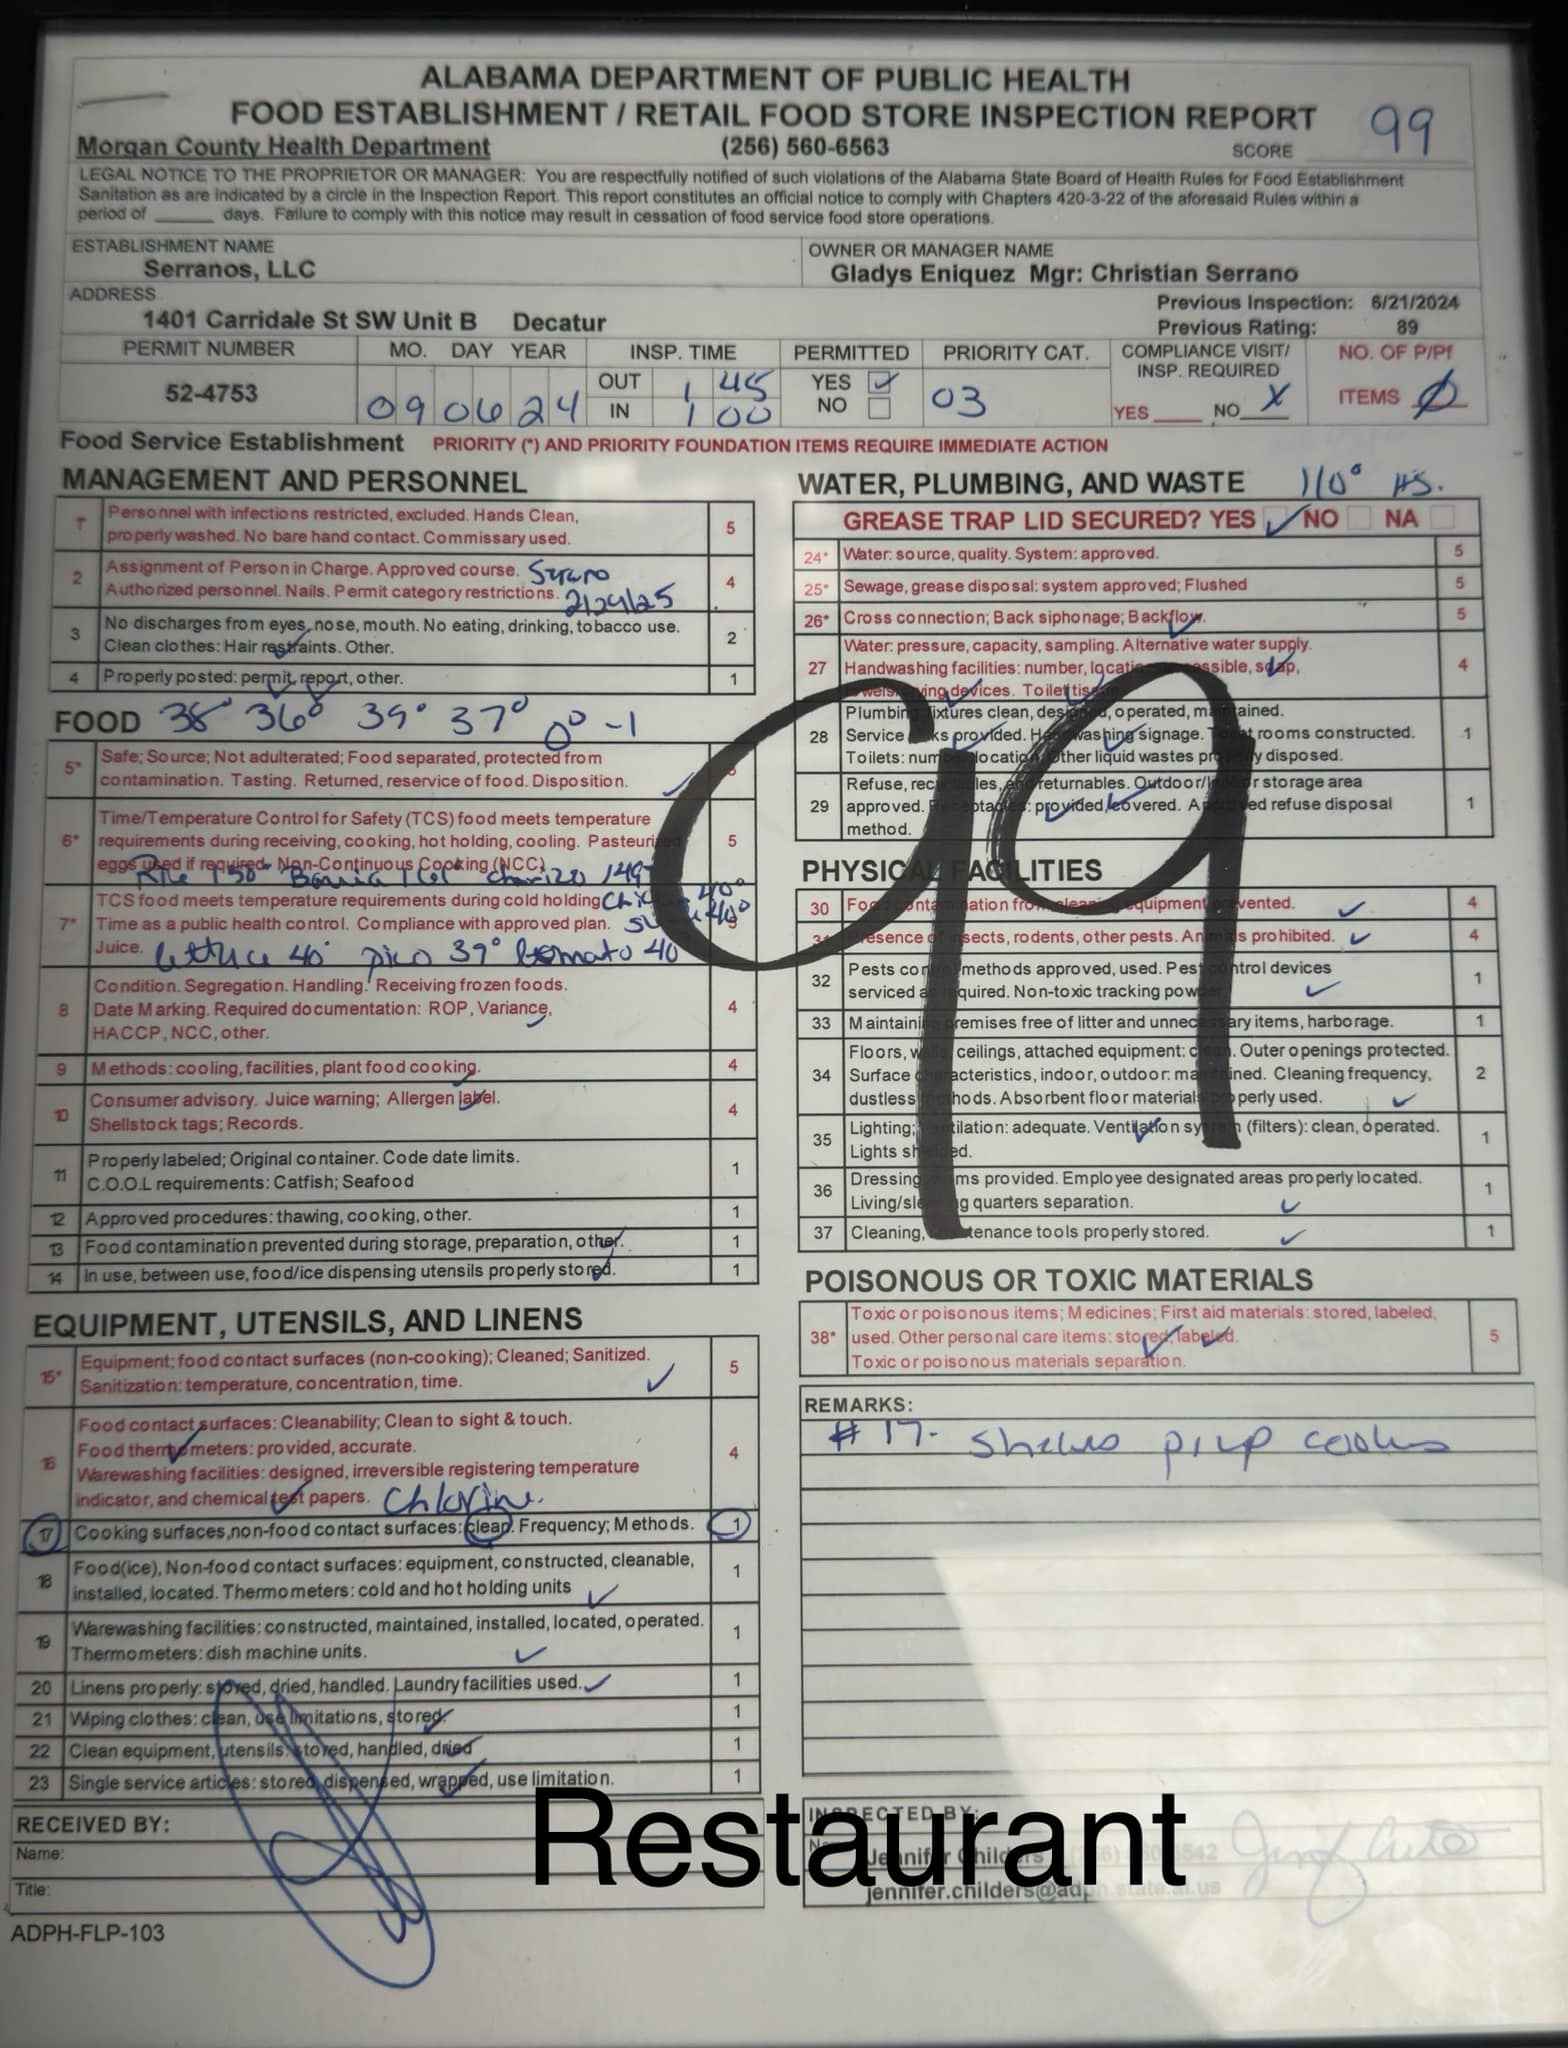 ALABAMA DEPARTMENT OF PUBLIC HEALTH
FOOD ESTABLISHMENT / RETAIL FOOD STORE INSPECTION REPORT
99
Morgan County Health Department
(256) 560-6563
SCORE
LEGAL NOTICE TO THE PROPRIETOR OR MANAGER: You are respectfully notified of such violations of the Alabama State Board of Health Rules for Food Establishment
Sanitation as are indicated by a circle in the Inspection Report. This report constitutes an official notice to comply with Chapters 420-3-22 of the aforesaid Rules within a
period of ______ days. Failure to comply with this notice may result in cessation of food service food store operations.
ESTABLISHMENT NAME
Serranos, LLC
OWNER OR MANAGER NAME
Gladys Eniquez Mgr: Christian Serrano
ADDRESS
1401 Carridale St SW Unit B Decatur
Previous Inspection: 6/21/2024
Previous Rating: 89
PERMIT NUMBER
52-4753
MO. DAY YEAR
090624
INSP. TIME
OUT 1 45
IN 1 00
PERMITTED
YES
NO
PRIORITY CAT.
03
COMPLIANCE VISIT/
INSP. REQUIRED
YES____ NO X
NO. OF P/Pf
ITEMS Ø
Food Service Establishment PRIORITY (*) AND PRIORITY FOUNDATION ITEMS REQUIRE IMMEDIATE ACTION
MANAGEMENT AND PERSONNEL
1 Personnel with infections restricted, excluded. Hands Clean, 5
properly washed. No bare hand contact. Commissary used.
2 Assignment of Person in Charge. Approved course. 4
Authorized personnel. Nails. Permit category restrictions. 2/24/25
3 No discharges from eyes, nose, mouth. No eating, drinking, tobacco use. 2
Clean clothes: Hair restraints. Other.
4 Properly posted: permit, report, other. 1
FOOD 38° 36° 39° 37° 0° -1
5* Safe; Source; Not adulterated; Food separated, protected from
contamination. Tasting. Returned, reservice of food. Disposition.
6* Time/Temperature Control for Safety (TCS) food meets temperature 5
requirements during receiving, cooking, hot holding, cooling. Pasteurized
eggs used if required. Non-Continuous Cooking (NCC)
Rice 150° chorizo 149
7* TCS food meets temperature requirements during cold holding 40°
Time as a public health control. Compliance with approved plan. 40°
Juice. lettuce 40° pico 39° tomato 40
8 Condition. Segregation. Handling. Receiving frozen foods. 4
Date Marking. Required documentation: ROP, Variance,
HACCP, NCC, other.
9 Methods: cooling, facilities, plant food cooking. 4
10 Consumer advisory. Juice warning; Allergen label. 4
Shellstock tags; Records.
11 Properly labeled; Original container. Code date limits. 1
C.O.O.L requirements: Catfish; Seafood
12 Approved procedures: thawing, cooking, other. 1
13 Food contamination prevented during storage, preparation, other. 1
14 In use, between use, food/ice dispensing utensils properly stored. 1
EQUIPMENT, UTENSILS, AND LINENS
15* Equipment; food contact surfaces (non-cooking); Cleaned; Sanitized. 5
Sanitization: temperature, concentration, time.
16 Food contact surfaces: Cleanability; Clean to sight & touch. 4
Food thermometers: provided, accurate.
Warewashing facilities: designed, irreversible registering temperature
indicator, and chemical test papers. Chlorine.
17 Cooking surfaces,non-food contact surfaces: clean. Frequency; Methods. 1
18 Food(ice), Non-food contact surfaces: equipment, constructed, cleanable, 1
installed, located. Thermometers: cold and hot holding units
19 Warewashing facilities: constructed, maintained, installed, located, operated. 1
Thermometers: dish machine units.
20 Linens properly: stored, dried, handled. Laundry facilities used. 1
21 Wiping clothes: clean, use limitations, stored. 1
22 Clean equipment, utensils: stored, handled, dried 1
23 Single service articles: stored, dispensed, wrapped, use limitation. 1
RECEIVED BY:
Name:
Title:
ADPH-FLP-103
WATER, PLUMBING, AND WASTE 110° HS.
GREASE TRAP LID SECURED? YES NO NA
24* Water: source, quality. System: approved. 5
25* Sewage, grease disposal: system approved; Flushed 5
26* Cross connection; Back siphonage; Backflow. 5
27 Water: pressure, capacity, sampling. Alternative water supply. 4
Handwashing facilities: number, location, accessible, soap,
towels/drying devices. Toilet tissue.
28 Plumbing fixtures clean, designed, operated, maintained. 1
Service sinks provided. Handwashing signage. Toilet rooms constructed.
Toilets: number, location. Other liquid wastes properly disposed.
29 Refuse, recyclables, and returnables. Outdoor/Indoor storage area 1
approved. Receptacles: provided, covered. Approved refuse disposal
method.
PHYSICAL FACILITIES
30 Food contamination from cleaning equipment prevented. 4
31 Presence of insects, rodents, other pests. Animals prohibited. 4
32 Pests control methods approved, used. Pest control devices 1
serviced as required. Non-toxic tracking powder
33 Maintaining premises free of litter and unnecessary items, harborage. 1
34 Floors, walls, ceilings, attached equipment: clean. Outer openings protected. 2
Surface characteristics, indoor, outdoor: maintained. Cleaning frequency,
dustless methods. Absorbent floor materials properly used.
35 Lighting; Ventilation: adequate. Ventilation system (filters): clean, operated. 1
Lights shielded.
36 Dressing rooms provided. Employee designated areas properly located. 1
Living/sleeping quarters separation.
37 Cleaning, maintenance tools properly stored. 1
99
POISONOUS OR TOXIC MATERIALS
38* Toxic or poisonous items; Medicines; First aid materials: stored, labeled, 5
used. Other personal care items: stored, labeled.
Toxic or poisonous materials separation.
REMARKS:
#17- shelves prep coolers
INSPECTED BY:
Jennifer Childers
jennifer.childers@adph.state.al.us
Restaurant